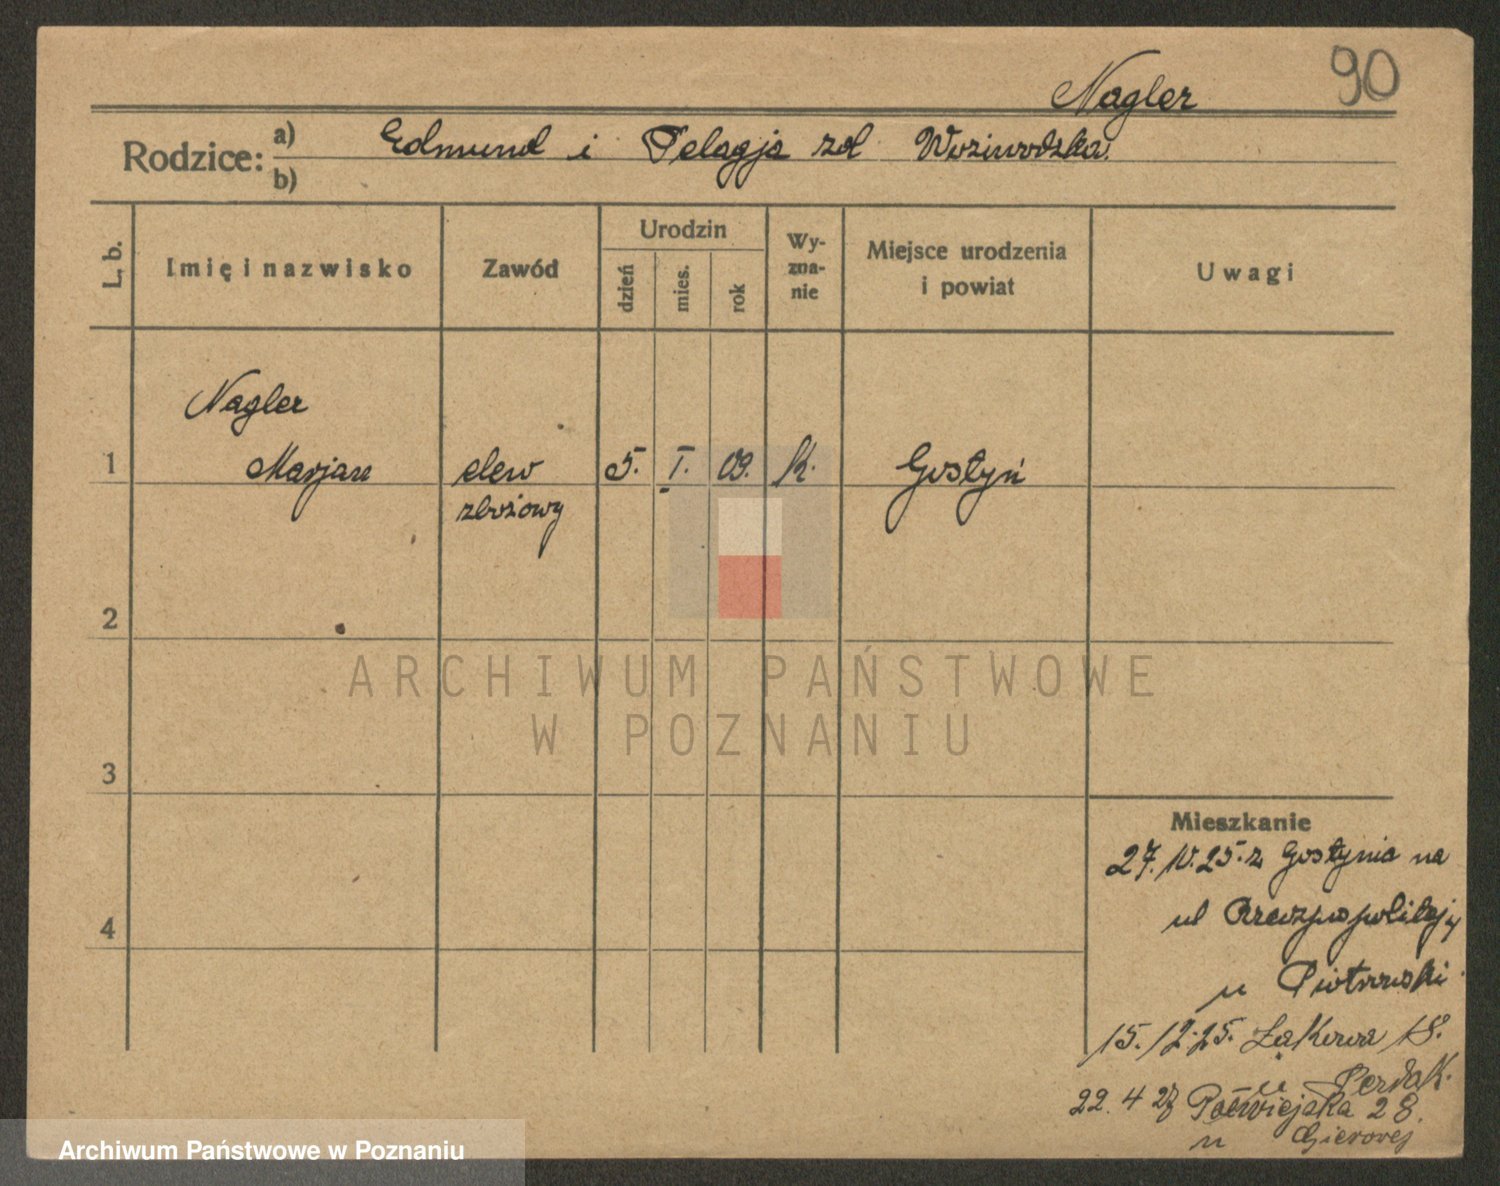 90
Nagler
Rodzice: a) Edmund i Pelagja zd
b)
L. b.
Imię i nazwisko
Zawód
Urodzin
dzień
mies.
rok
Wy-
zna-
nie
Miejsce urodzenia
i powiat
Uwagi
Nagler
1 Marjan elew 5. I. 09. K. Gostyń
zbożowy
2
3
4
ARCHIWUM PAŃSTWOWE
W POZNANIU
Mieszkanie
27. 25. z Gostynia na
ul
u Piotrowski
15. 12. 25. Łąkowa 18.
u Perdak.
22. 4 27 Półwiejska 28.
u
Archiwum Państwowe w Poznaniu